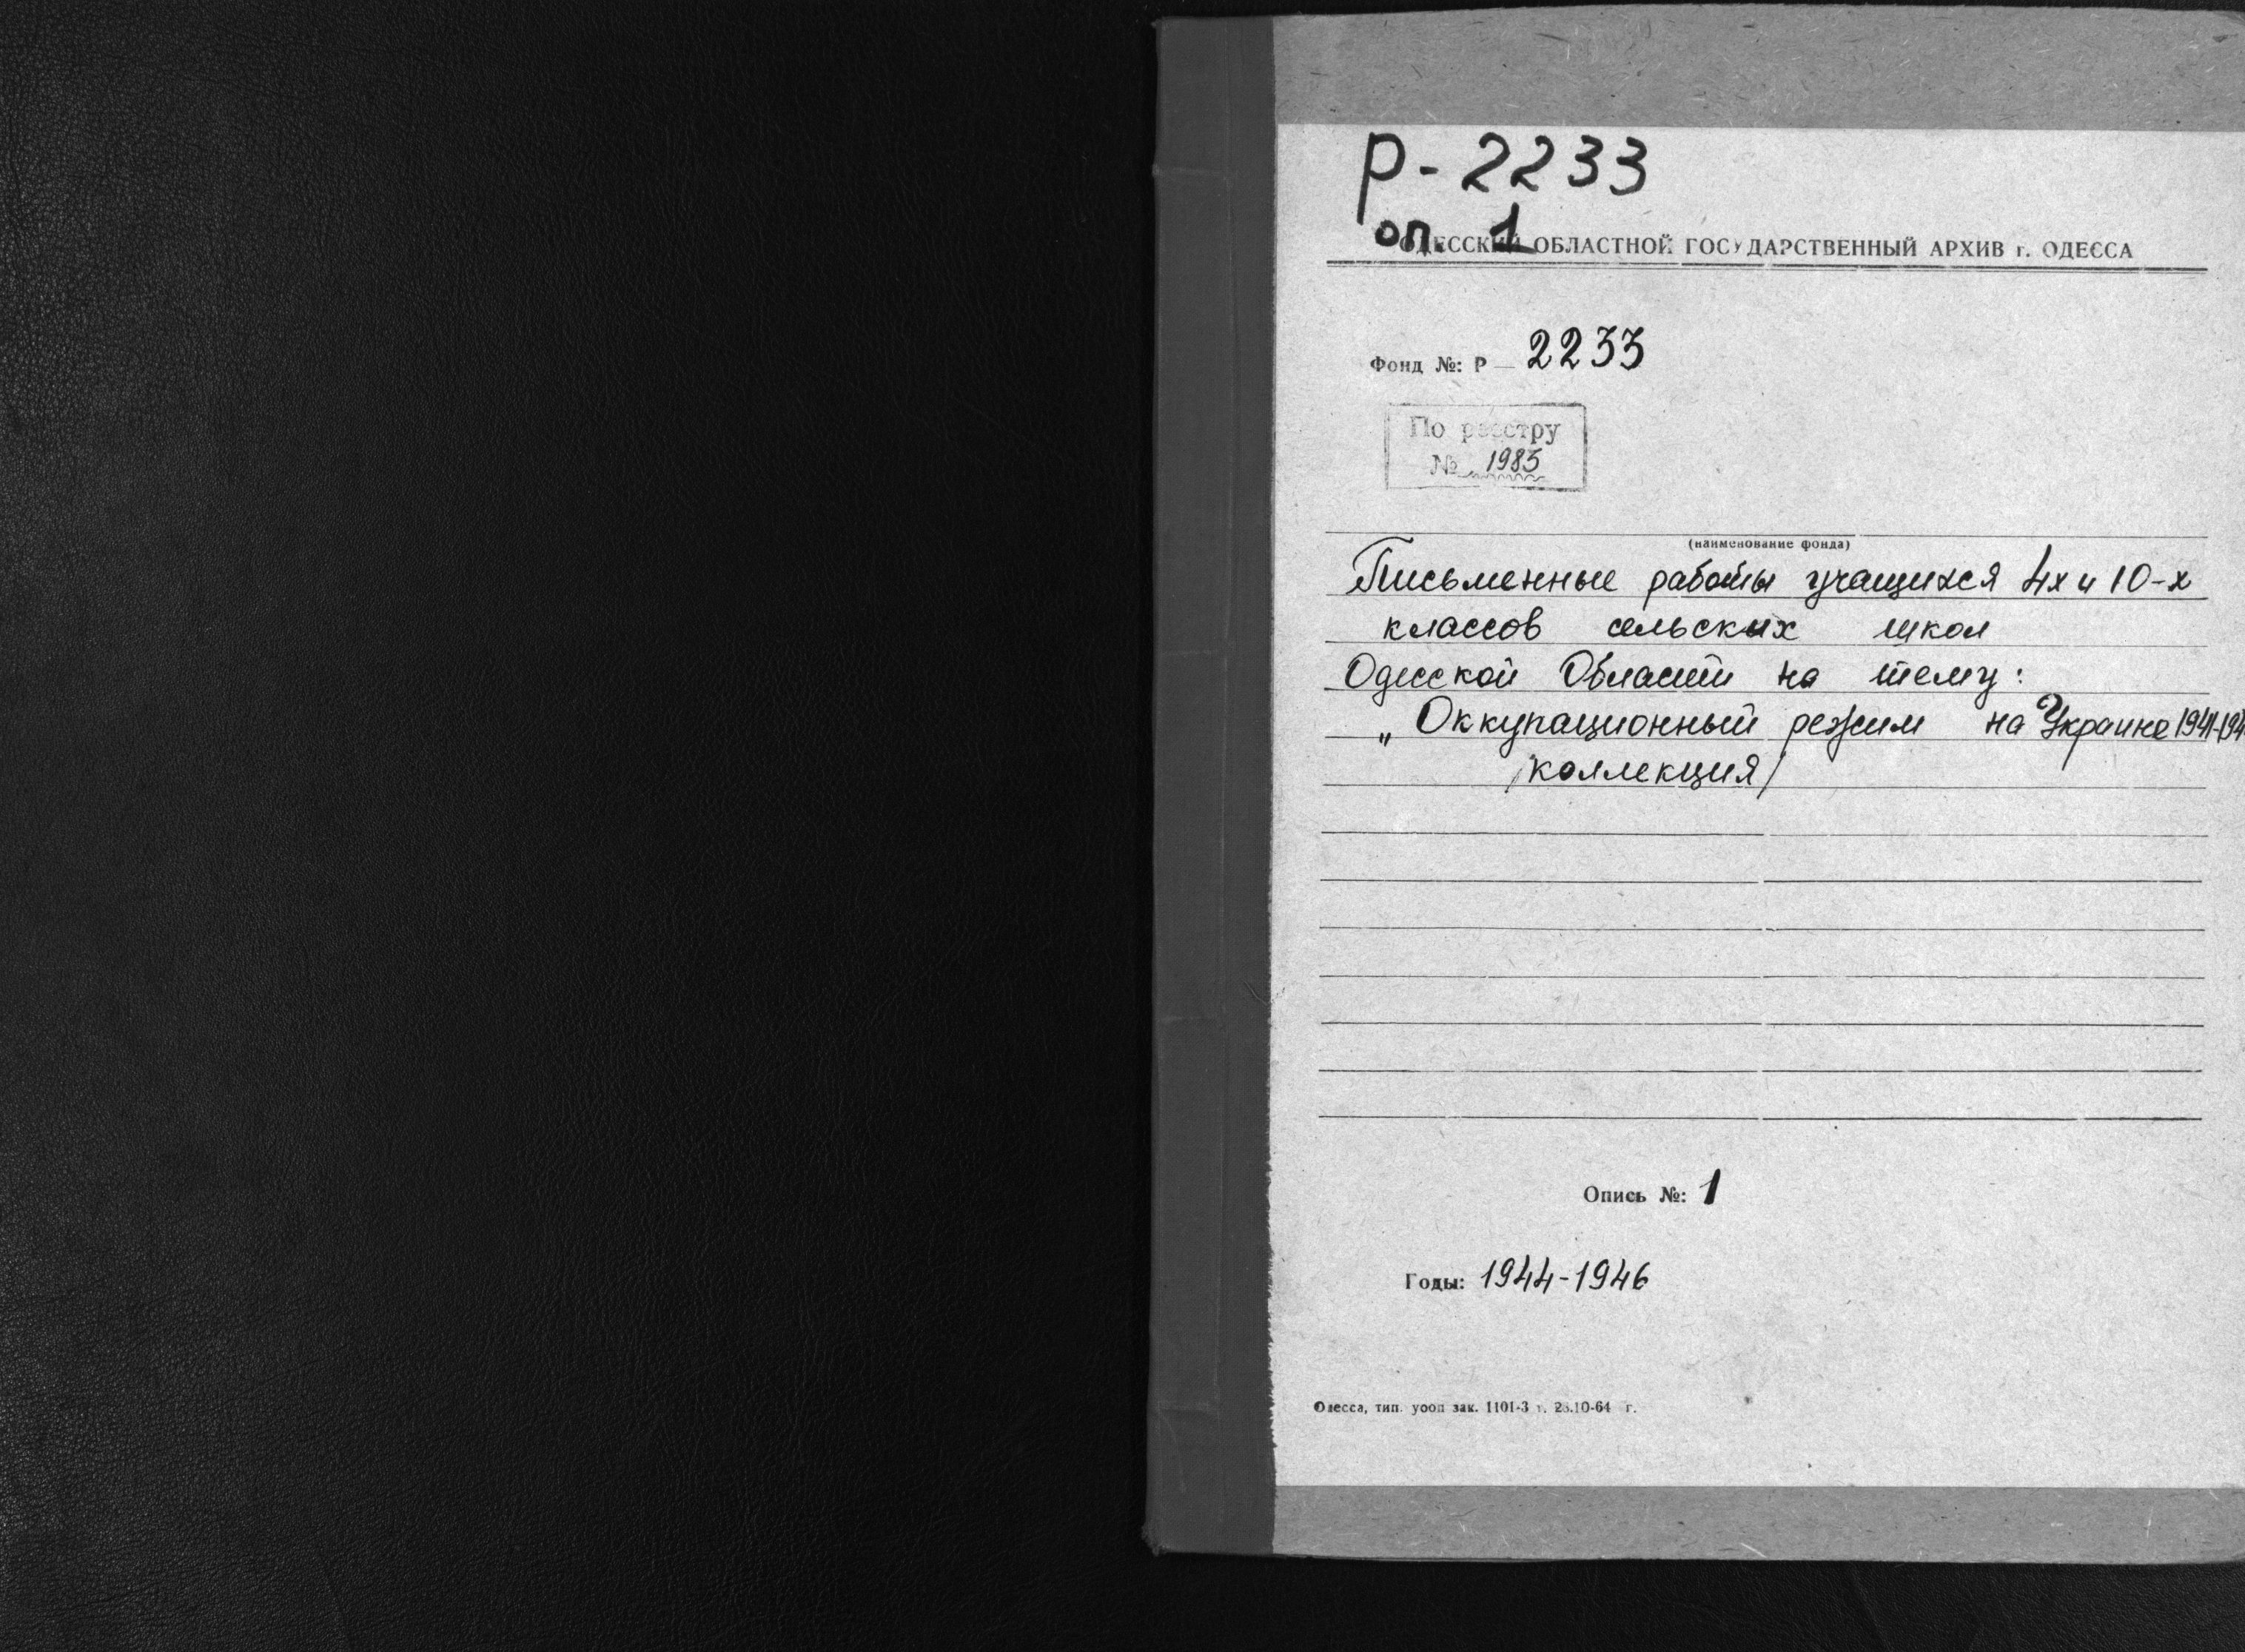 Р-2233
оп. 1
ОДЕССКИЙ ОБЛАСТНОЙ ГОСУДАРСТВЕННЫЙ АРХИВ г. ОДЕССА
Фонд №: Р — 2233
По реестру
№ 1983
(наименование фонда)
Письменные работы учащихся 4х и 10-х
классов сельских школ
Одесской Области на тему:
„Оккупационный режим на Украине 1941-194
/коллекция/
Опись №: 1
Годы: 1944-1946
Одесса, тип. уооп зак. 1101-3 т. 28.10-64 г.